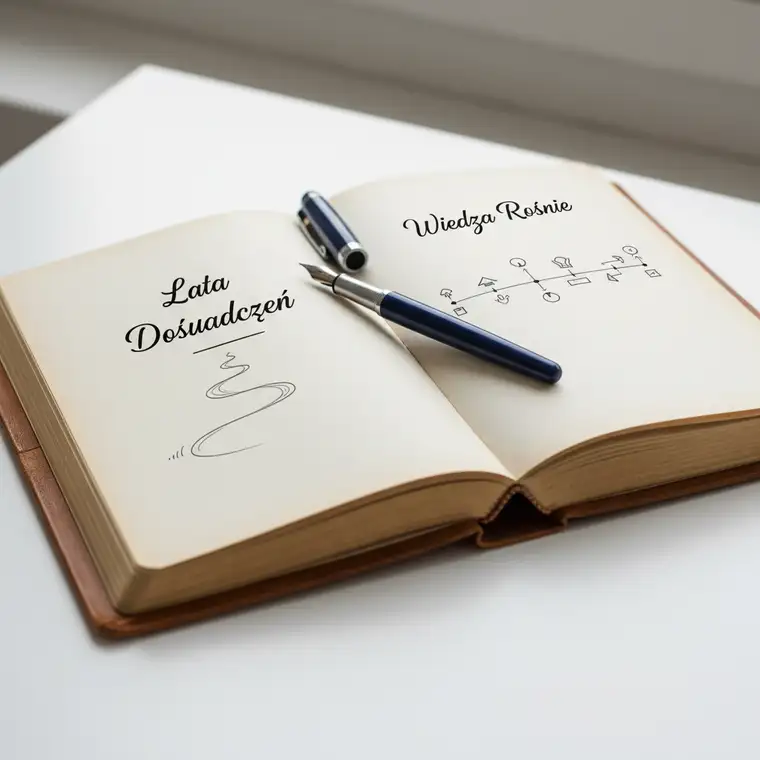 Lata
Dośuadczęń
Wiedza Rośnie